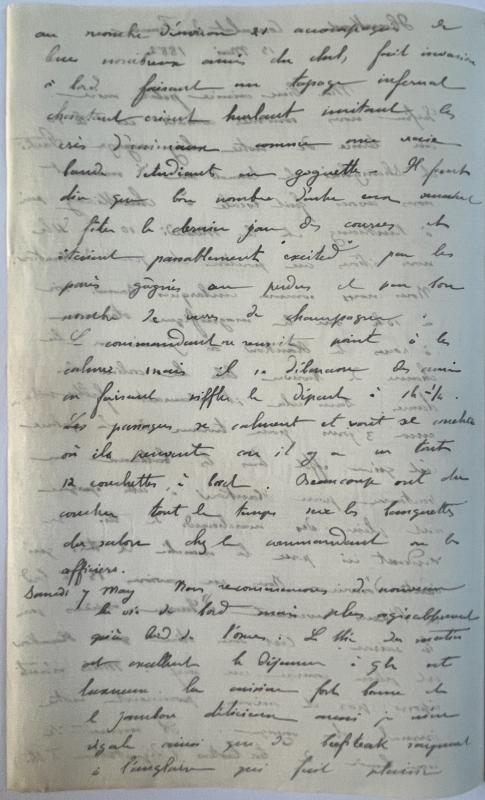 au nombre d'environ 20 accompagnés de
leurs nombreux amis du club, fait invasion
à bord faisant un tapage infernal
chantant criant hurlant imitant les
cris d'animaux comme une vraie
bande d'étudiants en goguette. Il faut
dire que bon nombre d'entre eux venaient
de fêter le dernier jour des courses et
étaient passablement "excited" par les
paris gagnés ou perdus et par bon
nombre de verres de champagne.
Le commandant ne reussit point à les
calmer mais il se débarasse des amis
en faisant siffler le départ à 1h 1/2.
Les passagers se calment et vont se coucher
où ils peuvent car il y a en tout
12 couchettes à bord. Beaucoup ont du
coucher tout le temps sur les banquettes
du salon chez le commandant ou les
officiers.
Samedi 7 May Nous recommencons de nouveau
la vie de bord mais plus agréablement
qu'à bord de l'
est excellent le déjeuner à 9h est
luxueux la cuisine fort bonne et
le jambon délicieux aussi je m'en
régale ainsi que de beefsteak saignant
à l'anglaise qui fait plaisir